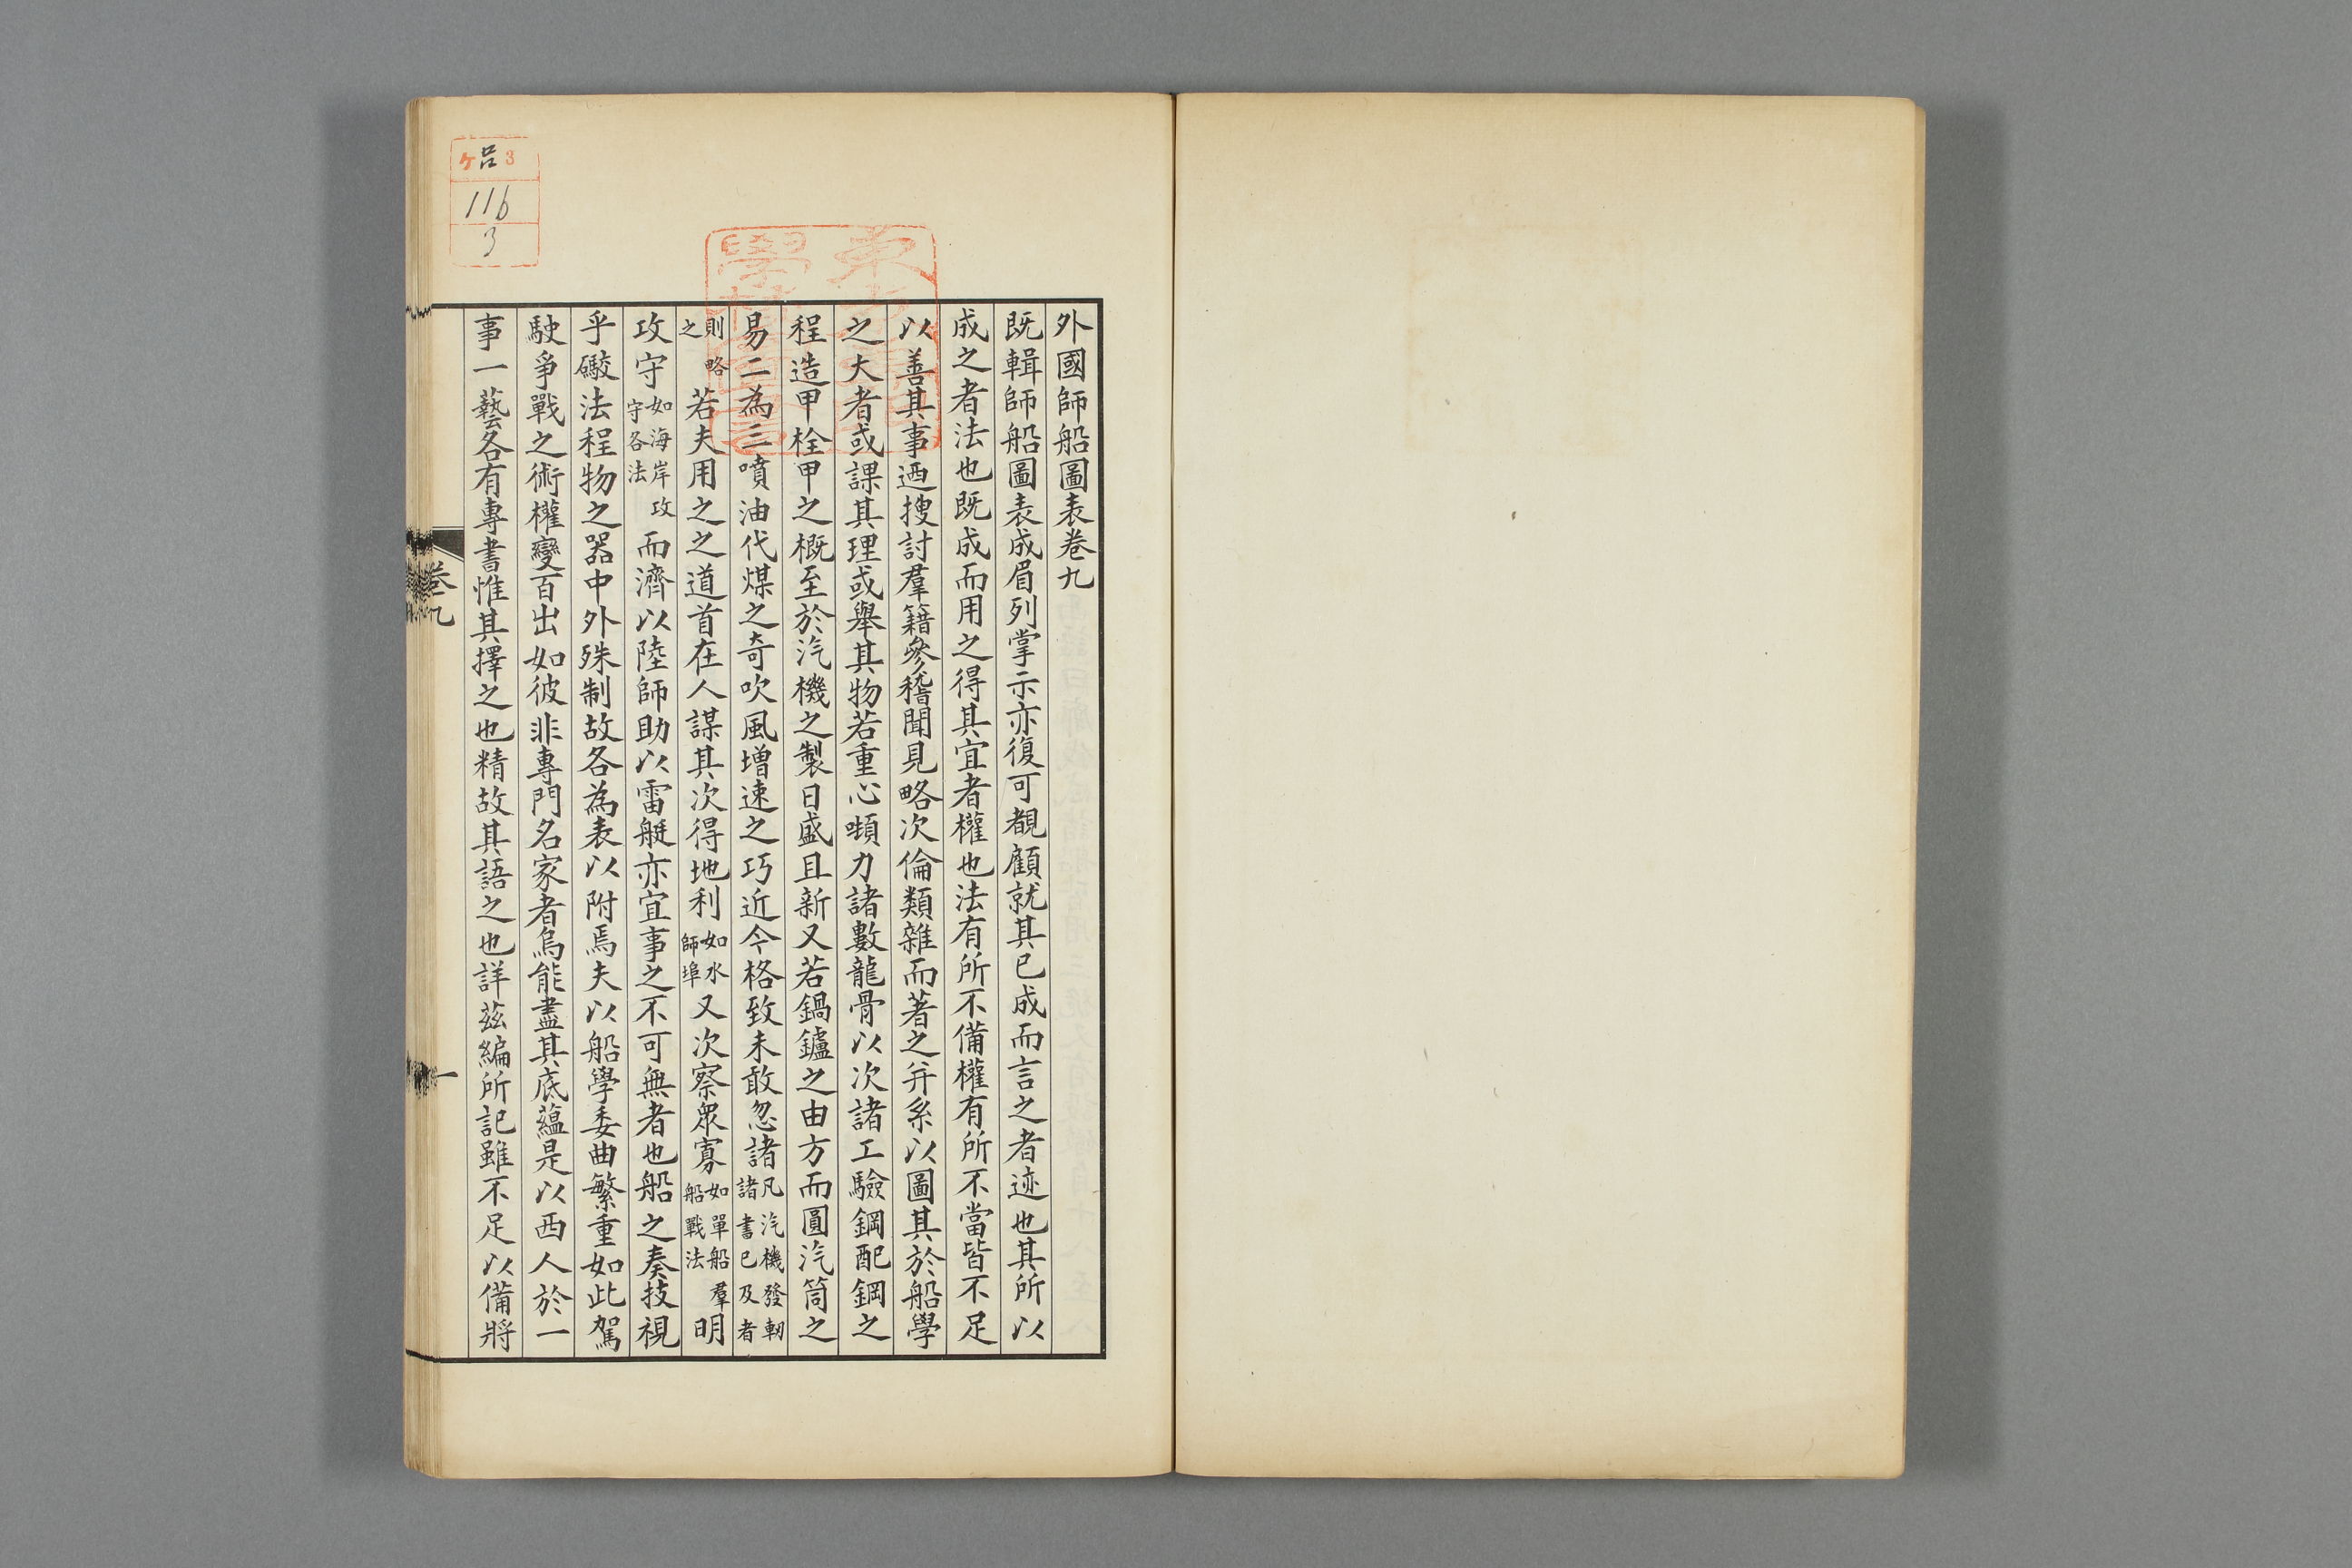 外國師船圖表卷九
既輯師船圖表成眉列掌示亦復可覩顧就其已成而言之者迹也其所以
成之者法也既成而用之得其宜者權也法有所不備權有所不當皆不足
以善其事迺搜討羣籍參稽聞見略次倫類雜而著之并系以圖其於船學
之大者或課其理或舉其物若重心嚬力諸數龍骨以次諸工驗鋼配鋼之
程造甲栓甲之概至於汽機之製日盛且新又若鍋鑪之由方而圓汽筒之
易二為三噴油代煤之奇吹風增速之巧近今格致未敢忽諸凡汽機發軔者諸書已及
則略之若夫用之之道首在人謀其次得地利如水師埠又次察衆寡如單船羣船戰法明
攻守如海岸攻守各法而濟以陸師助以雷艇亦宜事之不可無者也船之奏技視
乎礮法程物之器中外殊制故各為表以附焉夫以船學委曲繁重如此駕
駛爭戰之術權變百出如彼非專門名家者烏能盡其底蘊是以西人於一
事一藝各有專書惟其擇之也精故其語之也詳茲編所記雖不足以備將
卷九
一
ケ呂3
116
3